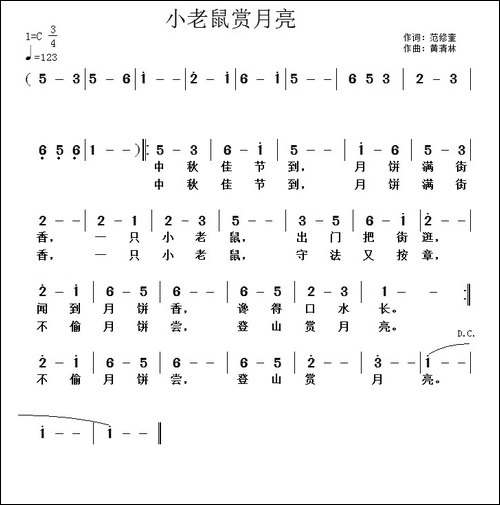 小老鼠赏月亮
1=C 3/4
♩=123
作词：范修奎
作曲：黄清林
( 5 - 3 | 5 - 6 | i - - | 2̇ - i | 6 - i | 5 - - | 6 5 3 | 2 - - |
6̣ 5̣ 6̣ | 1 - - ) ‖: 5 - 3 | 6 - i | 5 - - | i - 6 | 5 - 3 |
中秋佳节到，月饼满街
中秋佳节到，月饼满街
2 - - | 2 - 1 | 2 - 3 | 5 - - | 3 - 5 | 6 - i | 2̇ - - |
香，一只小老鼠，出门把街逛，
香，一只小老鼠，守法又按章，
2̇ - i | 6 - 5 | 6 - - | 6 - 5 | 2 - 3 | 1 - - :‖
闻到月饼香，谗得口水长。
不偷月饼尝，登山赏月亮。
D.C.
2̇ - i | 6 - 5 | 6 - - | 6 - 5 | 2̇ - - | 3̇ - - | i - - |
不偷月饼尝，登山赏月亮。
i - - | i - - ‖